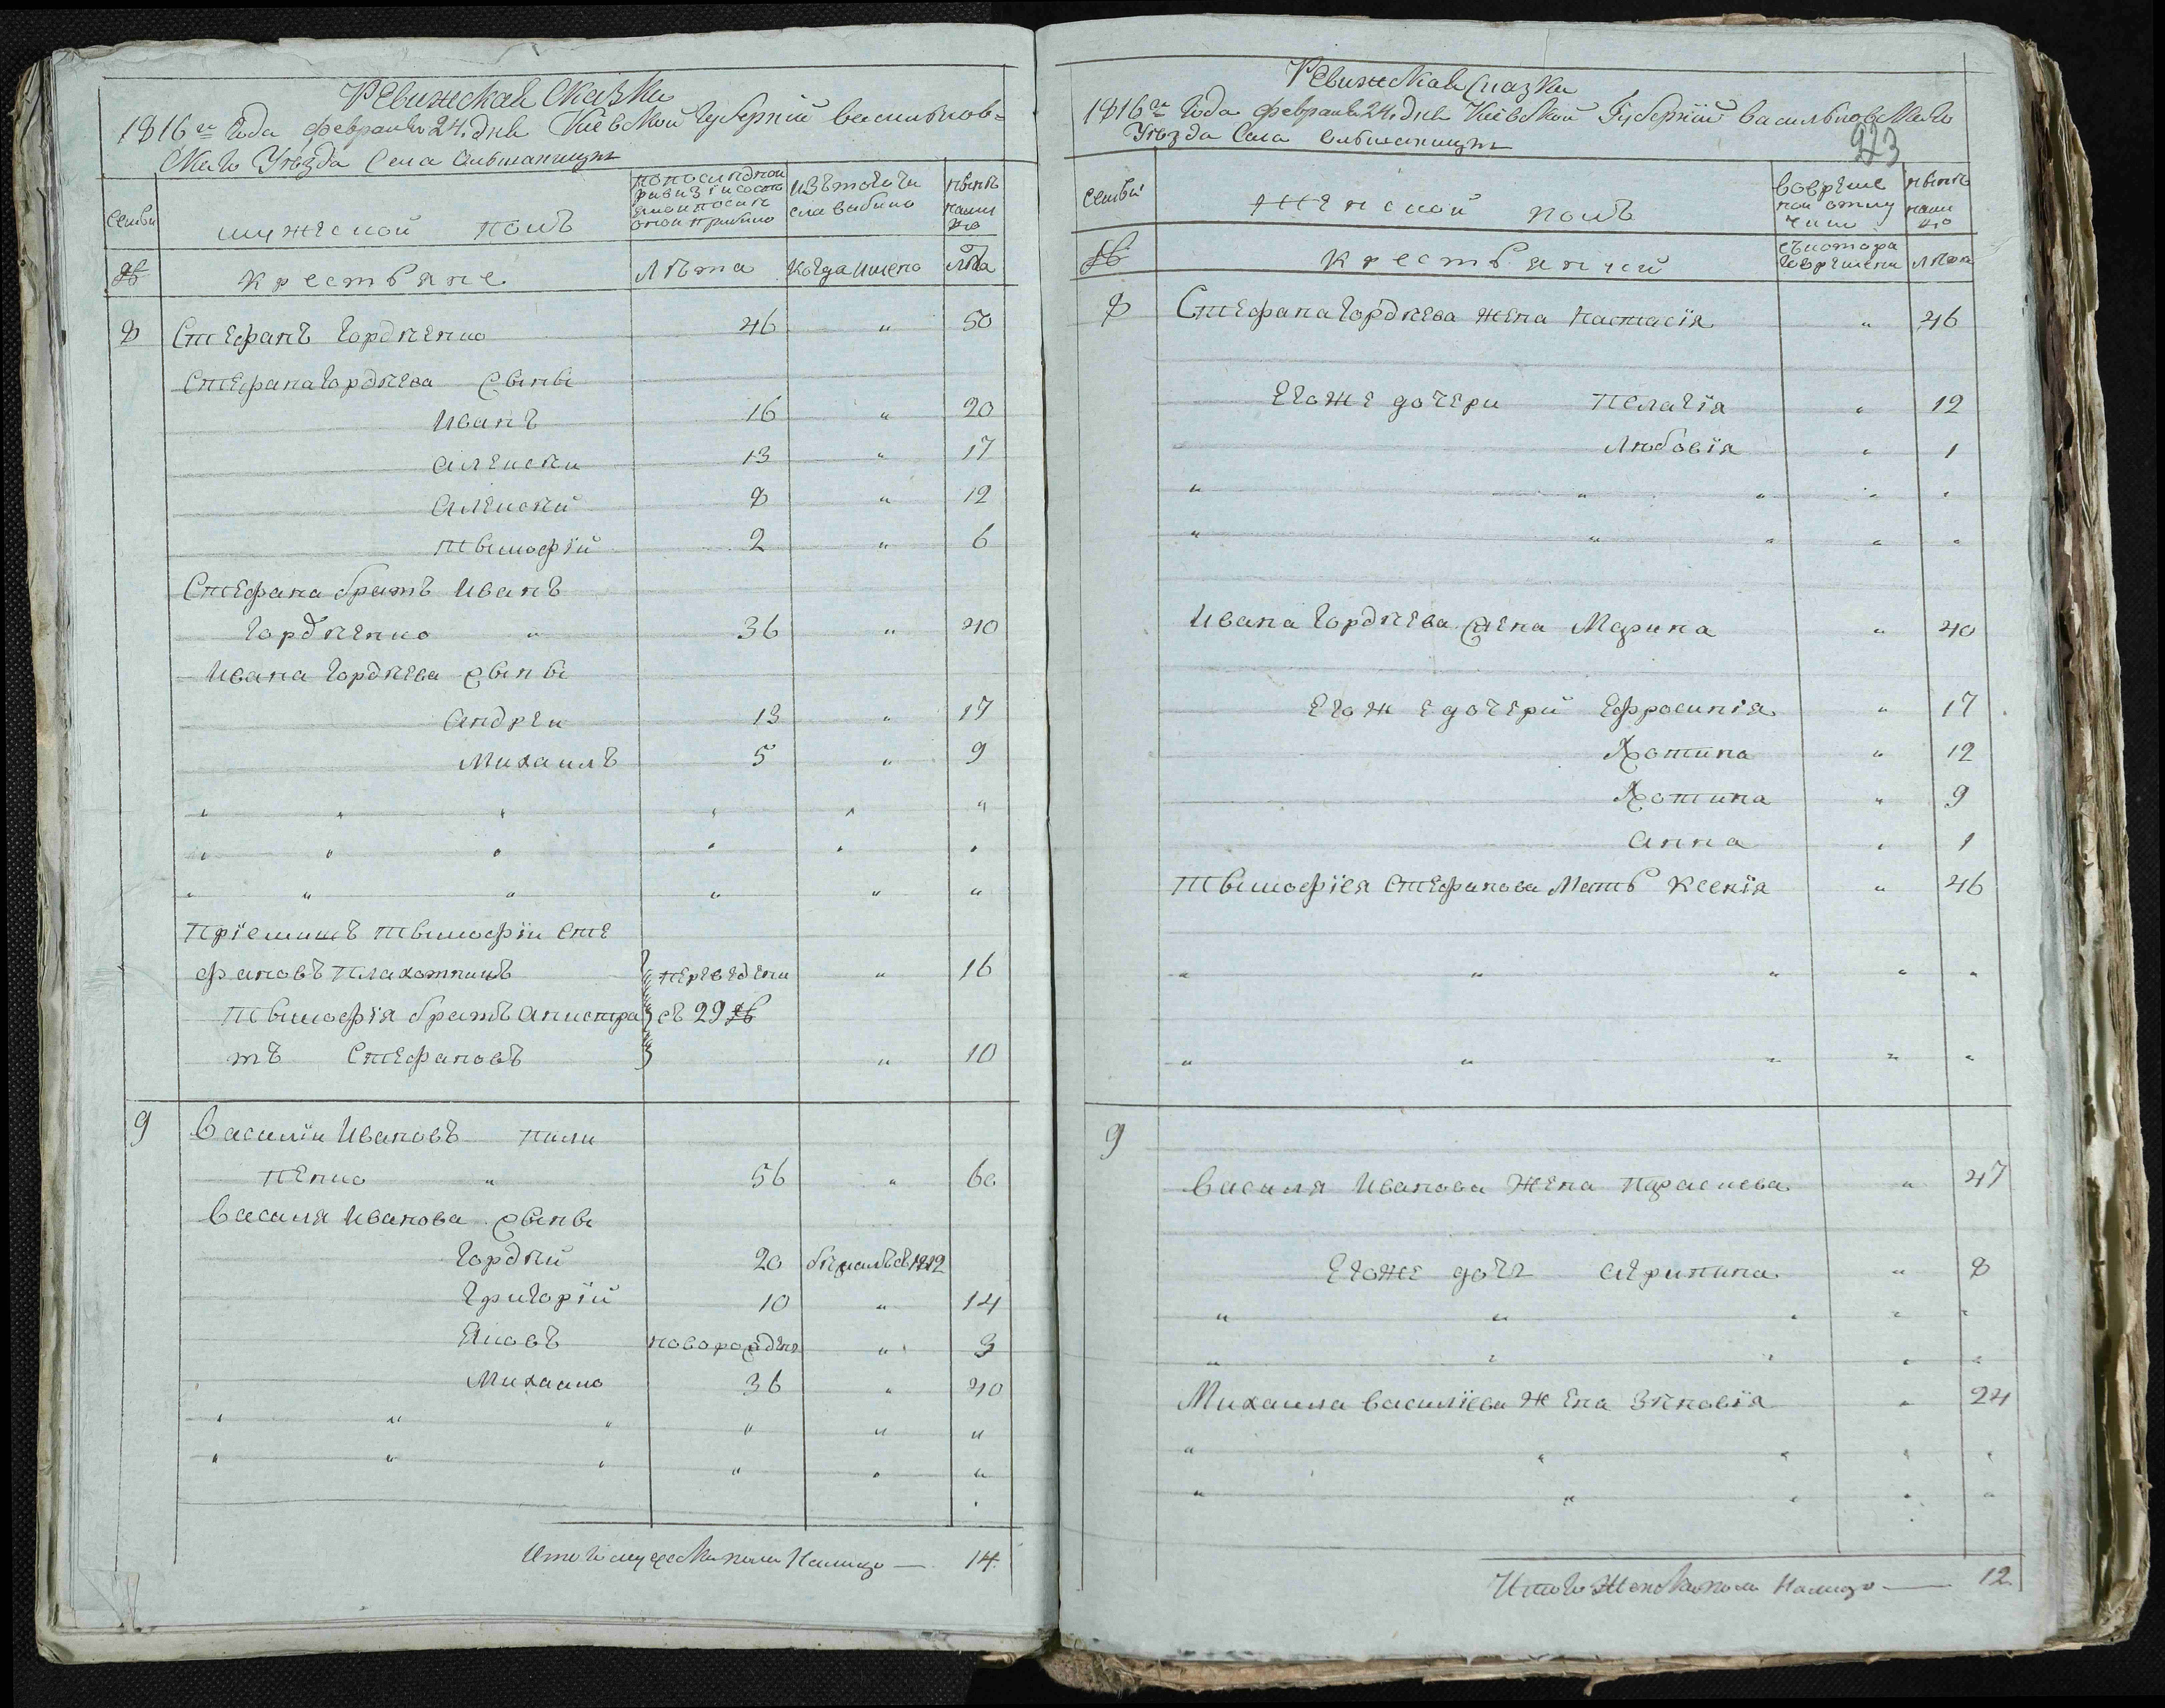 Ревижская Сказка
1816го Года февраля 24. дня Киевской Губернїи васильков=
скаго Уезда Села Ольшаницы
Семьи
мужеской полъ
по последной ревизїи состояло и после оной прибыло
изътого числа выбыло
ныне налицо
№
крестьяне
Лѣта
когда имено
лѣта
8 Стефанъ Гордѣенко 46 " 50
Стефана Гордѣева сыны
Иванъ 16 " 20
Алексѣи 13 " 17
Алексѣй 8 " 12
Тымофїй 2 " 6
Стефана братъ Иванъ
Гордѣенко " 36 " 40
Ивана Гордѣева сыны
Андрѣи 13 " 17
Михаилъ 5 " 9
" " " " " "
" " " " " "
" " " " " "
Прїемишъ Тымофїи Сте
фановъ Плахотникъ переведени " 16
Тымофїя братъ Апистра съ 29 №
тъ Стефановъ " 10
9 Василїи Ивановъ Пили
пенко " 56 " 60
Василя Иванова сыны
Гордѣй 20 бѣжалъ съ 1812
Григорїй 10 " 14
Яковъ новорожден " 3
Михаило 36 " 40
" " " " " "
" " " " " "
Итого мужеска пола Налицо — 14.
Ревижская Сказка
1816го Года февраля 24. дня Киевской Губернїи васильковскаго
Уезда Села Ольшаницы
223
Семьи
Женской полъ
вовремяной отлучки
ныне налицо
№
крестьянъкй
съ котора говремени
лѣта
8 Стефана Гордѣева жена Настасїя " 46
Егоже дочери Пелагїя " 12
Любовїя " 1
" " " " "
" " " " "
Ивана Гордѣева жена Марина " 40
Егоже дочерй Ефросинїя " 17
Хотина " 12
Хотина " 9
Анна " 1
Тымофїея Стефанова Мать Ксенїя " 46
" " " " "
" " " " "
9
Василя Иванова жена Параскева " 47
Егоже дочъ Агрипина " 8
" " " " "
" " " " "
Михаила Василїева жена Зѣновїя " 24
" " " " "
" " " " "
Итого Женска пола Налицо — 12.